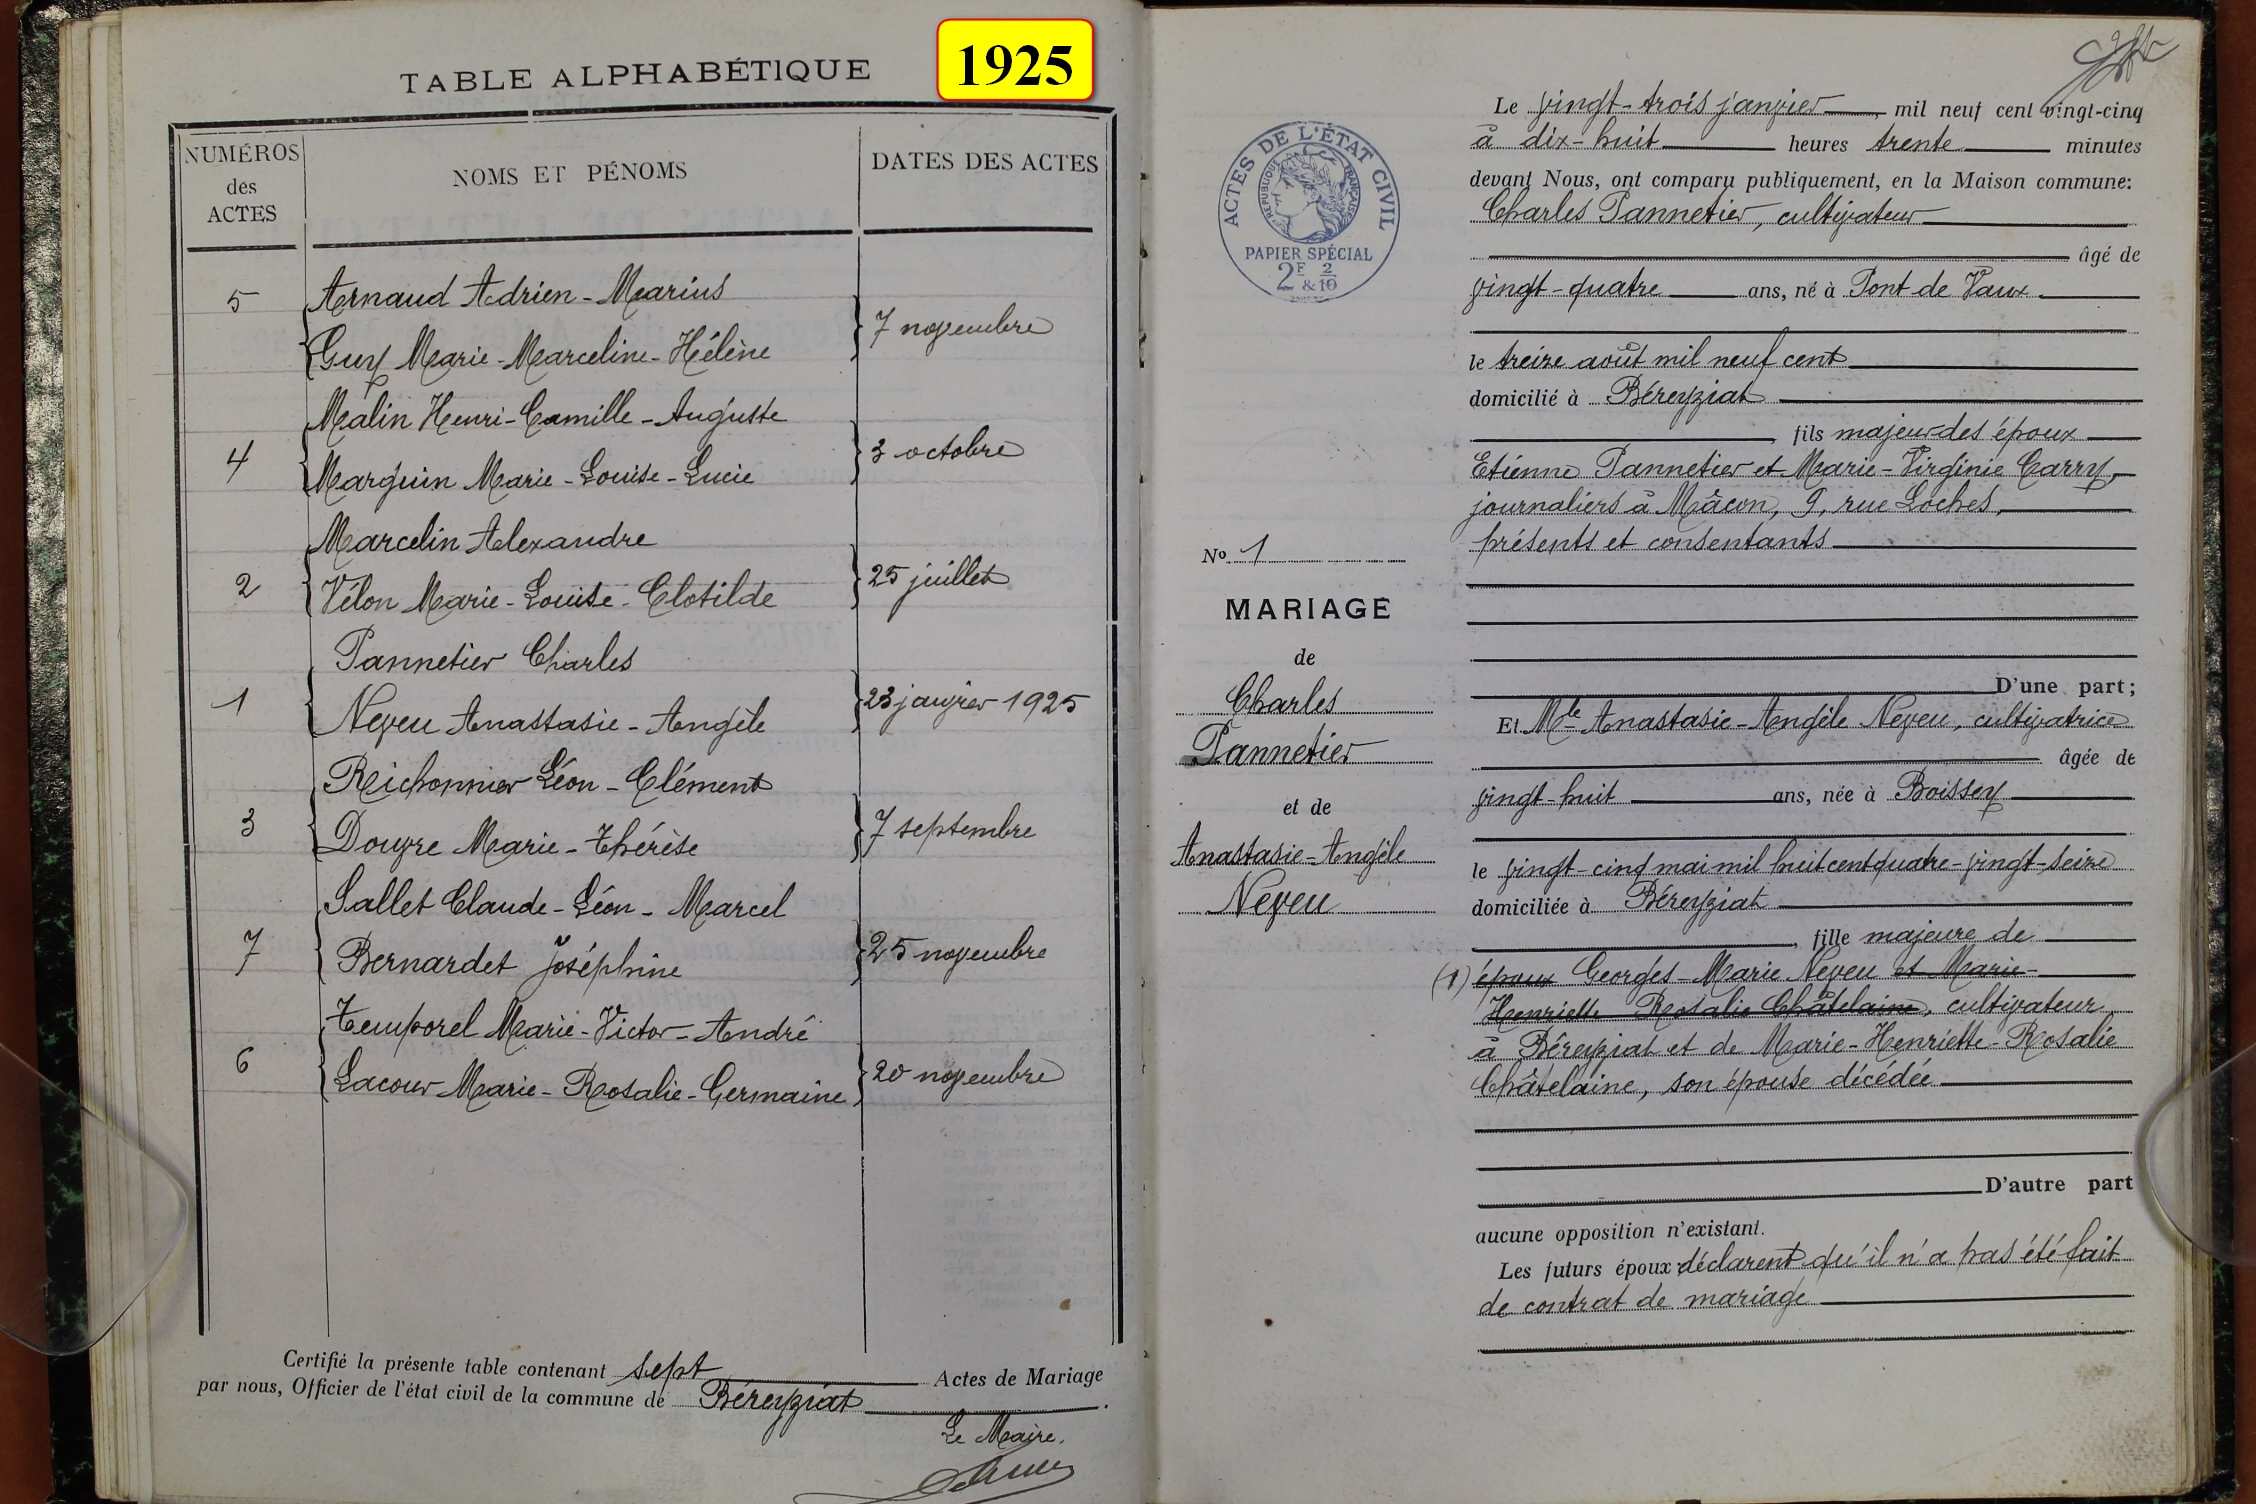 1925
TABLE ALPHABÉTIQUE
NUMÉROS
des
ACTES
NOMS ET PÉNOMS
DATES DES ACTES
Arnaud Adrien-Marius
5
7 novembre
Guy Marie-Marceline-Hélène
Malin Henri-Camille-Auguste
4
3 octobre
Marguin Marie-Louise-Lucie
Marcelin Alexandre
2
25 juillet
Vélon Marie-Louise-Clotilde
Pannetier Charles
1
23 janvier 1925
Neveu Anastasie-Angèle
Richonnier Léon-Clément
3
7 septembre
Douvre Marie-Thérèse
Sallet Claude-Léon-Marcel
7
25 novembre
Bernardet Joséphine
Temporel Marie-Victor-André
6
20 novembre
Lacour Marie-Rosalie-Germaine
Certifié la présente table contenant sept Actes de Mariage
par nous, Officier de l'état civil de la commune de Béreyziat.
Le Maire,
ACTES DE L'ÉTAT CIVIL
RÉPUBLIQUE FRANÇAISE
PAPIER SPÉCIAL
2F & 2/10
No 1
MARIAGE
de
Charles
Pannetier
et de
Anastasie-Angèle
Neveu
Le vingt-trois janvier mil neuf cent vingt-cinq
à dix-huit heures trente minutes
devant Nous, ont comparu publiquement, en la Maison commune:
Charles Pannetier, cultivateur
âgé de
vingt-quatre ans, né à Pont de Vaux
le treize août mil neuf cent
domicilié à Béreyziat
fils majeur des époux
Etienne Pannetier et Marie-Virginie Carry,
journaliers à Mâcon, 9, rue Loches,
présents et consentants
D'une part;
Et Mle Anastasie-Angèle Neveu, cultivatrice
âgée de
vingt-huit ans, née à Boissey
le vingt-cinq mai mil huit cent quatre-vingt-seize
domiciliée à Béreyziat
fille majeure de
(1) époux Georges-Marie Neveu et Marie-
Henriette Rosalie Châtelaine, cultivateur
à Béreyziat et de Marie-Henriette-Rosalie
Châtelaine, son épouse décédée
D'autre part
aucune opposition n'existant.
Les futurs époux déclarent qu'il n'a pas été fait
de contrat de mariage